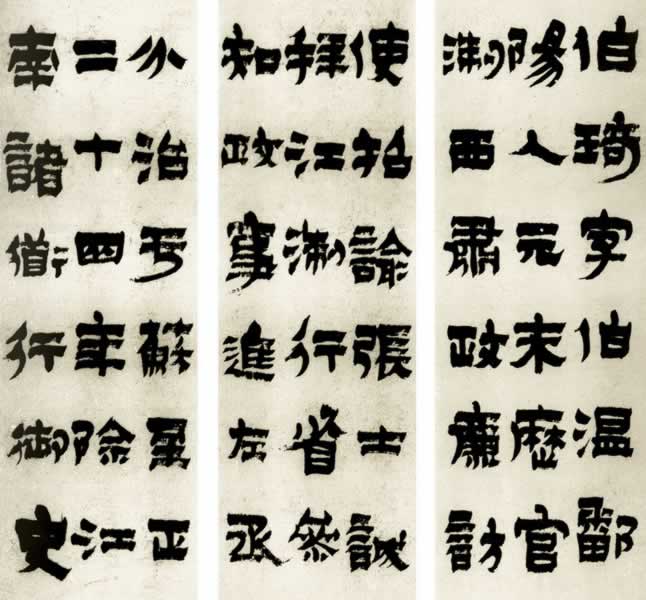 伯琦字伯温鄱
陽人元末歷官
淛西肅政廉訪
使招諭張士誠
拜江淛行省參
知政事進左丞
分治于蘇至正
二十四年除江
南諸道行御史